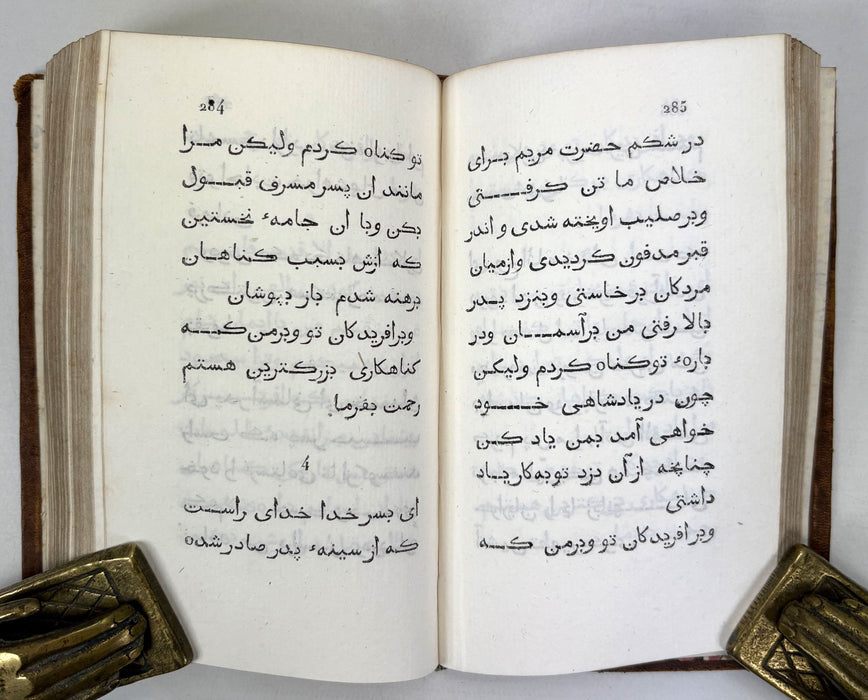 284
تو کناه کردم ولیکن مـرا
مانند ان پسر مسرف قبـول
بکن وبا ان جامهء نخستین
که ازش بسبب کناهـان
برهنه شدم باز بپوشان
وبرافریدکان تو وبرمن کـــه
کناهکاری بزرکترین هستم
رحمت بفرما
4
ای بسر خدا خدای راست
که از سینهء پدر صادر شده
285
در شکم حضرت مریم بـرای
خلاص ما تن کرفــتی
وبر صلیب اویخته شدی و اندر
قبر مدفون کردیدی وازمیان
مردکان برخاستی وبنزد پـدر
بالا رفتی من برآسمـــان ودر
بارهء تو کناه کردم ولیکن
چون در یادشاهی خـــود
خواهی آمد بمن یاد کـن
چنانچه از آن دزد توبه کار یـاد
داشتی
وبرافریدکان تو وبرمن کـــه